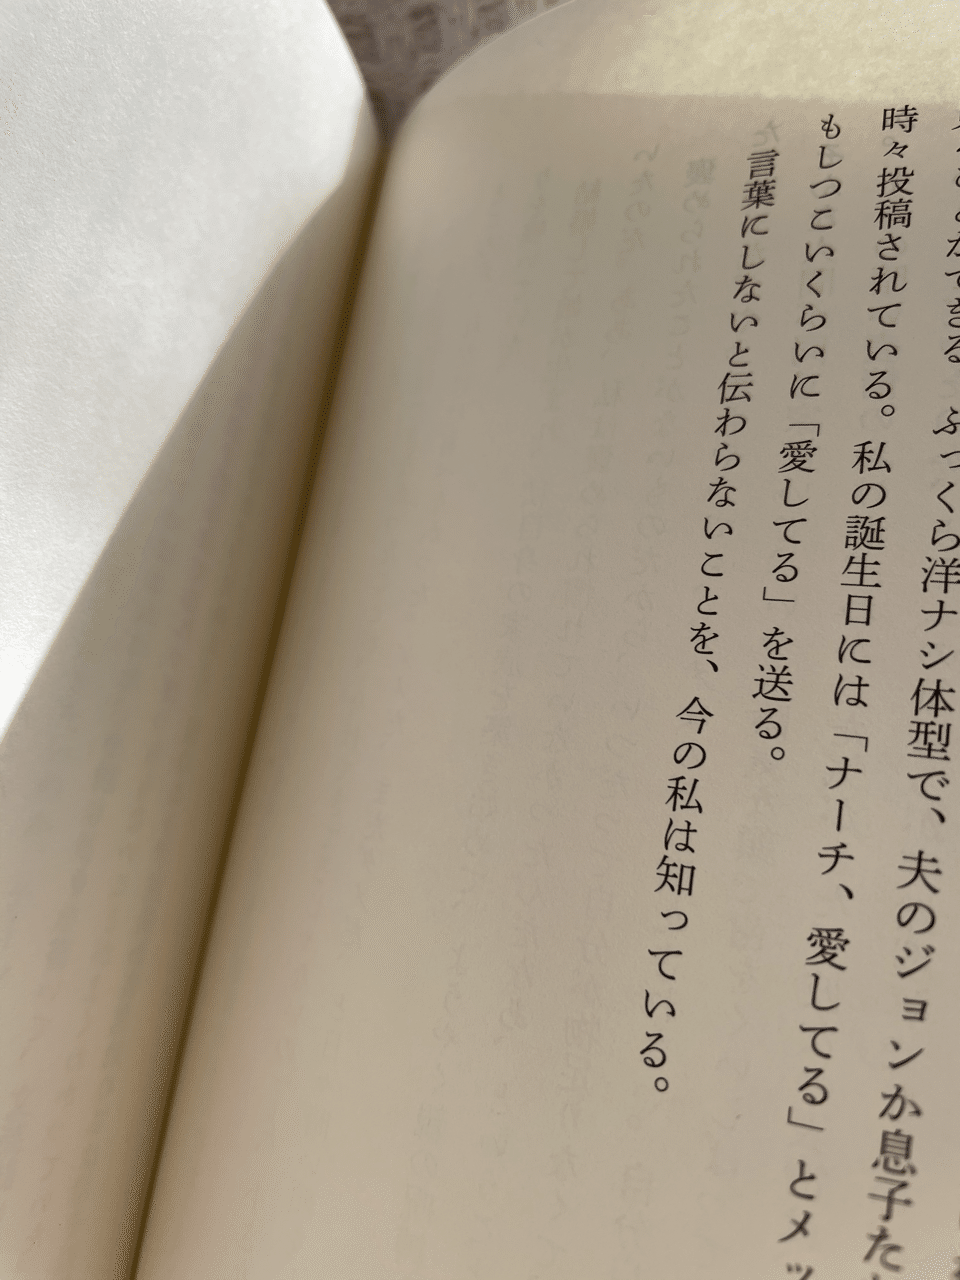 できる。ふっくら洋ナシ体型で、夫のジョンか息子た
時々投稿されている。私の誕生日には「ナーチ、愛してる」とメッ
もしつこいくらいに「愛してる」を送る。
言葉にしないと伝わらないことを、今の私は知っている。